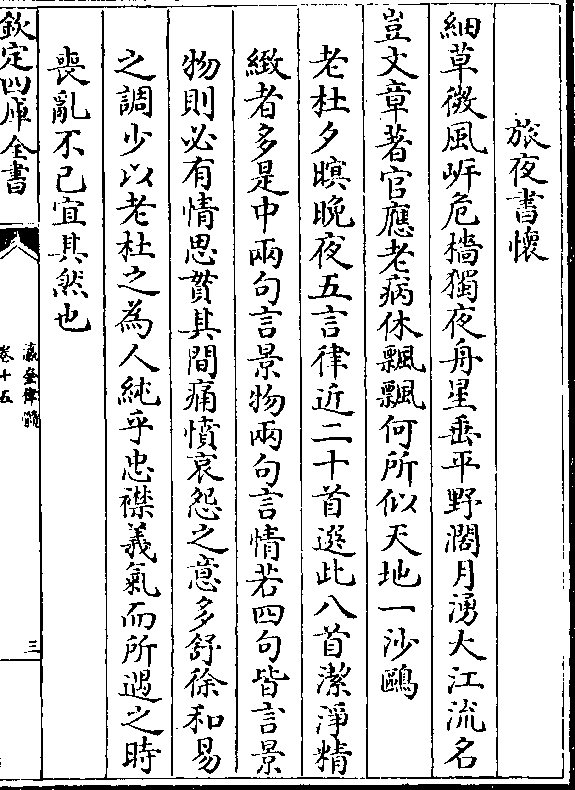 旅夜書懷
細草微風岸危檣獨夜舟星垂平野濶月湧大江流名
豈文章著官應老病休飄飄何所似天地一沙鷗
老杜夕暝晚夜五言律近二十首選此八首潔淨精
緻者多是中兩句言景物兩句言情若四句皆言景
物則必有情思貫其間痛憤哀怨之意多舒徐和易
之調少以老杜之為人純乎忠襟義氣而所遇之時
喪亂不已宜其然也
欽定四庫全書
瀛奎律髓
卷十五
三